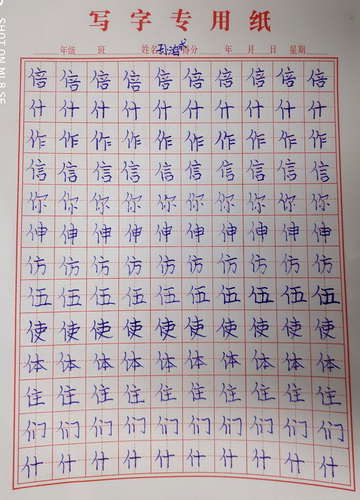 写字专用纸
年级 班 姓名 得分 年 月 日 星期
倍倍倍倍倍倍倍倍倍倍
什什什什什什什什什什
作作作作作作作作作作
信信信信信信信信信信
你你你你你你你你你你
伸伸伸伸伸伸伸伸伸伸
仿仿仿仿仿仿仿仿仿仿
伍伍伍伍伍伍伍伍伍伍
使使使使使使使使使使
体体体体体体体体体体
住住住住住住住住住住
们们们们们们们们们们
什什什什什什什什什什
SHOT ON MI 8 SE